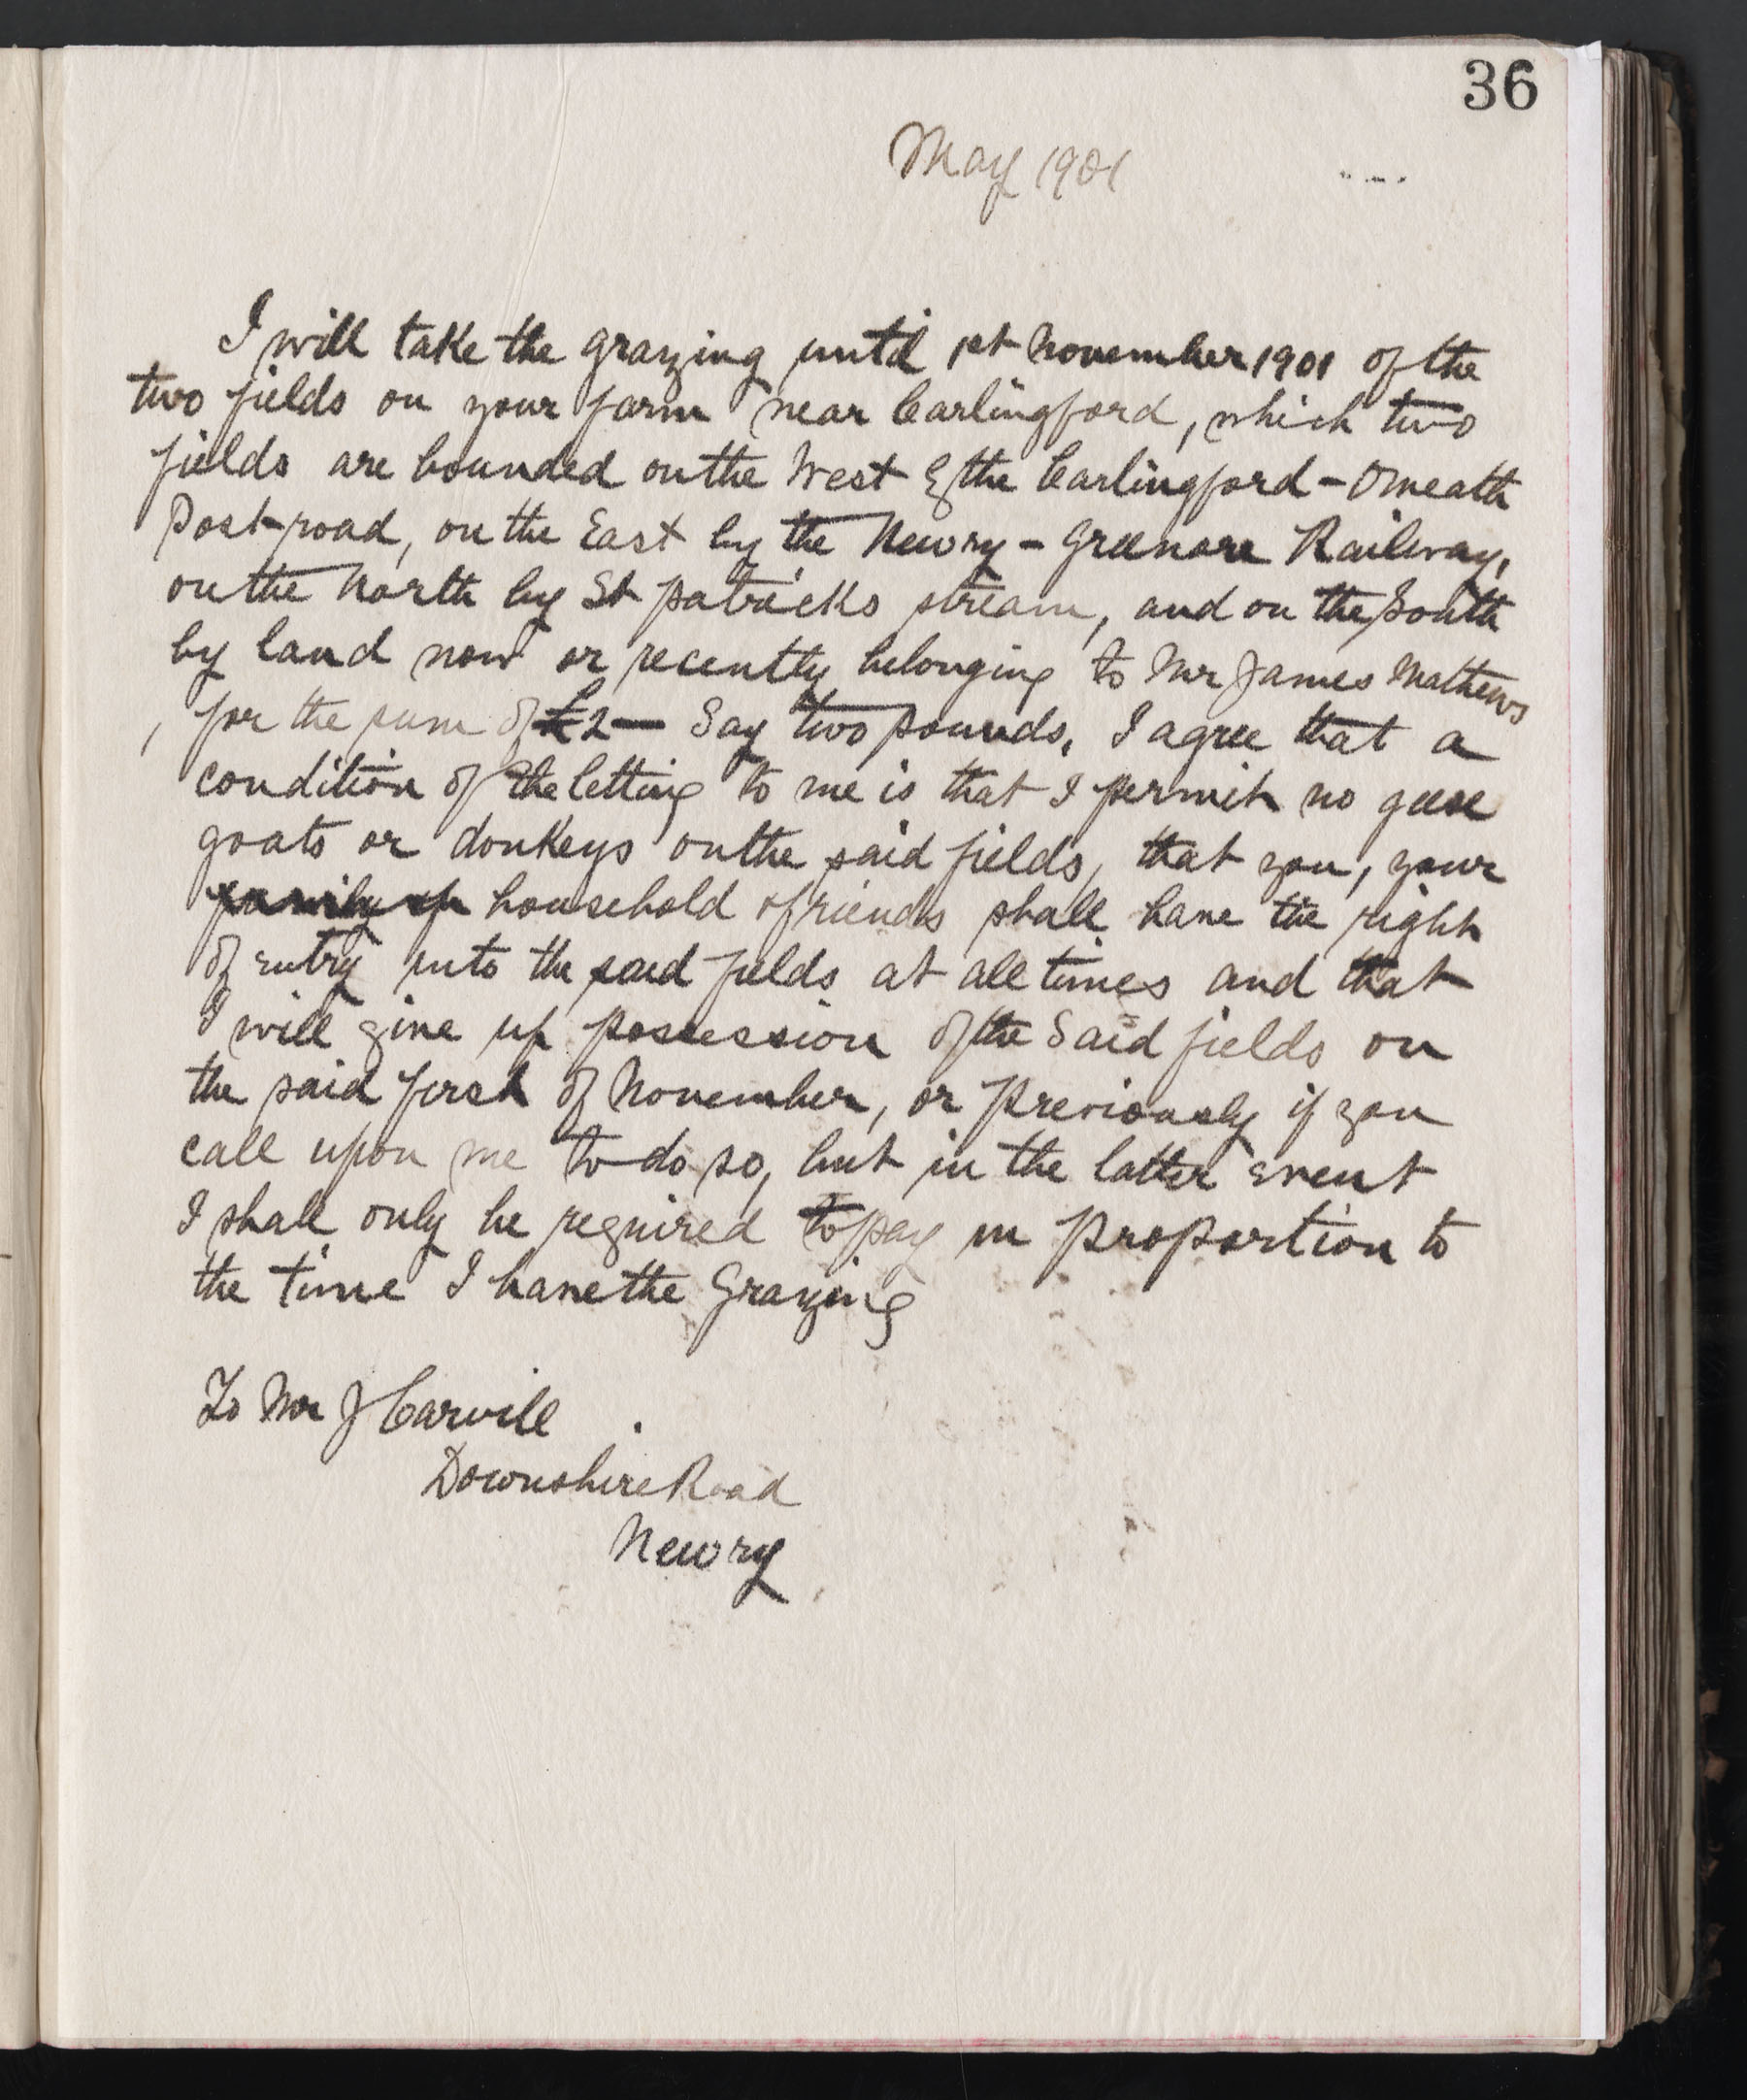 36
May 1901
I will take the grazing until 1st November 1901 of the
two fields on your farm near Carlingford, which two
fields are bounded on the West by the Carlingford - Omeath
Post-road, on the East by the Newry - Greenore Railway,
on the North by St Patricks stream, and on the South
by land now or recently belonging to Mr James Mathews
, for the sum of £2 — Say two pounds, I agree that a
condition of the letting to me is that I permit no geese
goats or donkeys on the said fields, that you, your
family or household or friends shall have the right
of entry into the said fields at all times and that
I will give up possession of the Said fields on
the said first of November, or previously if you
call upon me to do so, but in the latter event
I shall only be required to pay in proportion to
the time I have the Grazing
To Mr J Carvill
Downshire Road
Newry